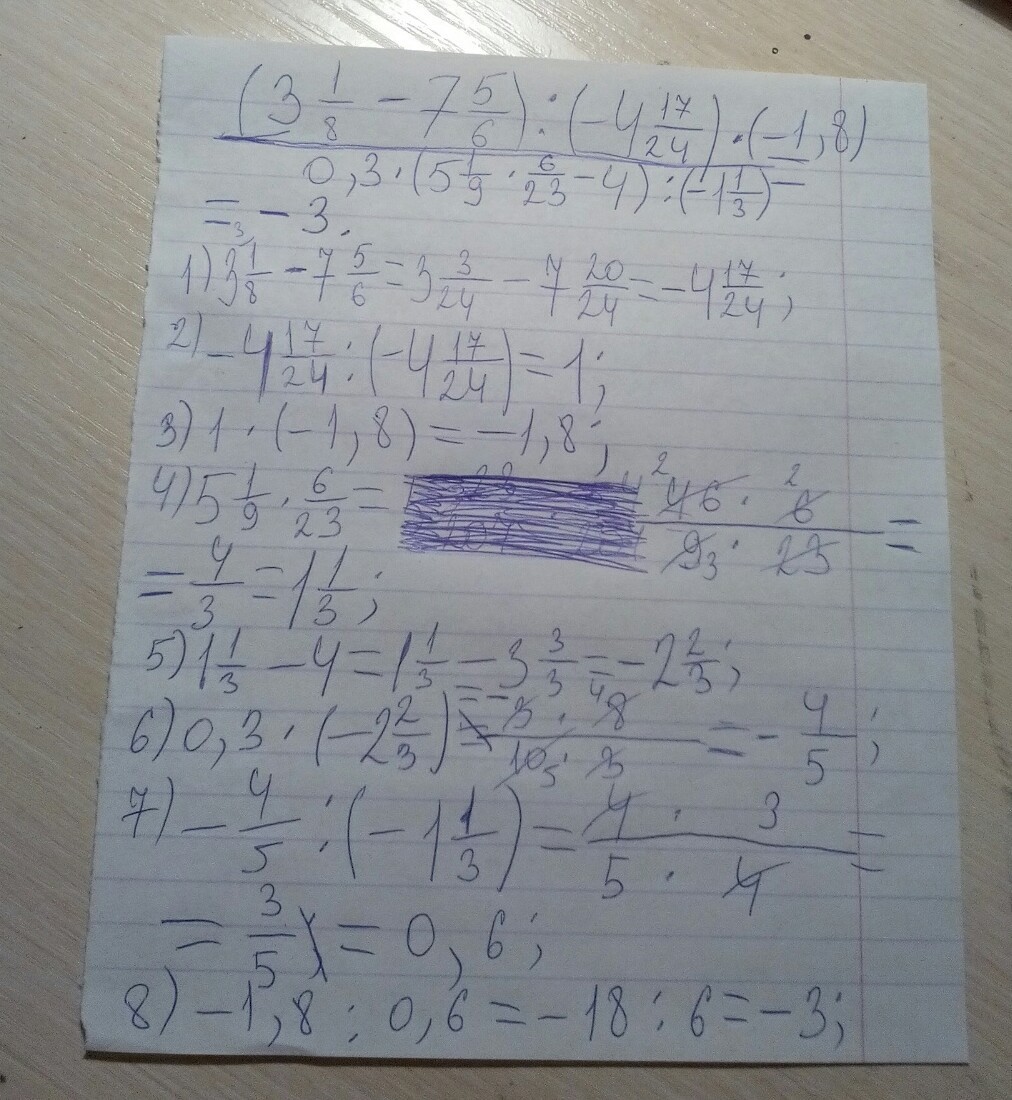 (3 1/8 − 7 5/6) : (−4 17/24) · (−1,8)
0,3 · (5 1/9 · 6/23 − 4) : (−1 1/3) =
= − 3.
1) 3 1/8 − 7 5/6 = 3 3/24 − 7 20/24 = −4 17/24;
2) −4 17/24 : (−4 17/24) = 1;
3) 1 · (−1,8) = −1,8;
4) 5 1/9 · 6/23 = 46 · 6 / 9 · 23 =
= 4/3 = 1 1/3;
5) 1 1/3 − 4 = 1 1/3 − 3 3/3 = −2 2/3;
6) 0,3 · (−2 2/3) = − 3 · 8 / 10 · 3 = − 4/5;
7) − 4/5 : (−1 1/3) = 4 · 3 / 5 · 4 =
= 3/5 = 0,6;
8) −1,8 : 0,6 = −18 : 6 = −3;